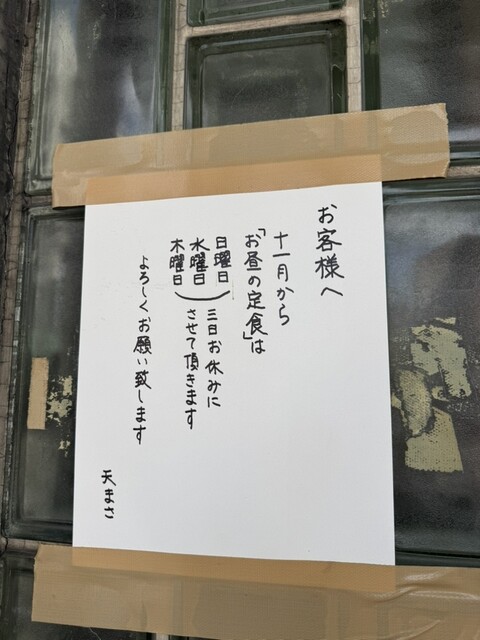 お客様へ
十一月から
「お昼の定食」は
日曜日
水曜日
木曜日
三日お休みに
させて頂きます
よろしくお願い致します
天まさ